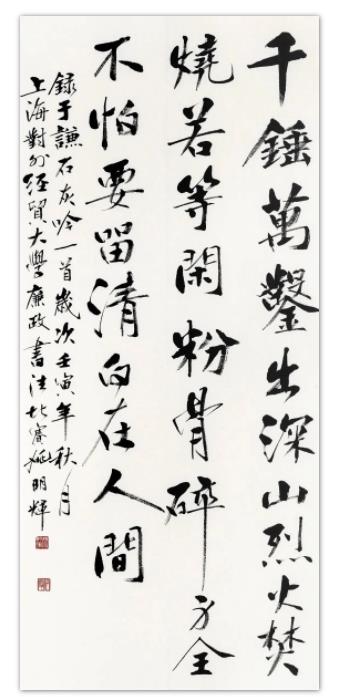 千錘萬鑿出深山烈火焚
燒若等閑粉骨碎身全
不怕要留清白在人間
錄于謙石灰吟一首歲次壬寅年秋月
上海對外經貿大學廉政書法比賽 明輝